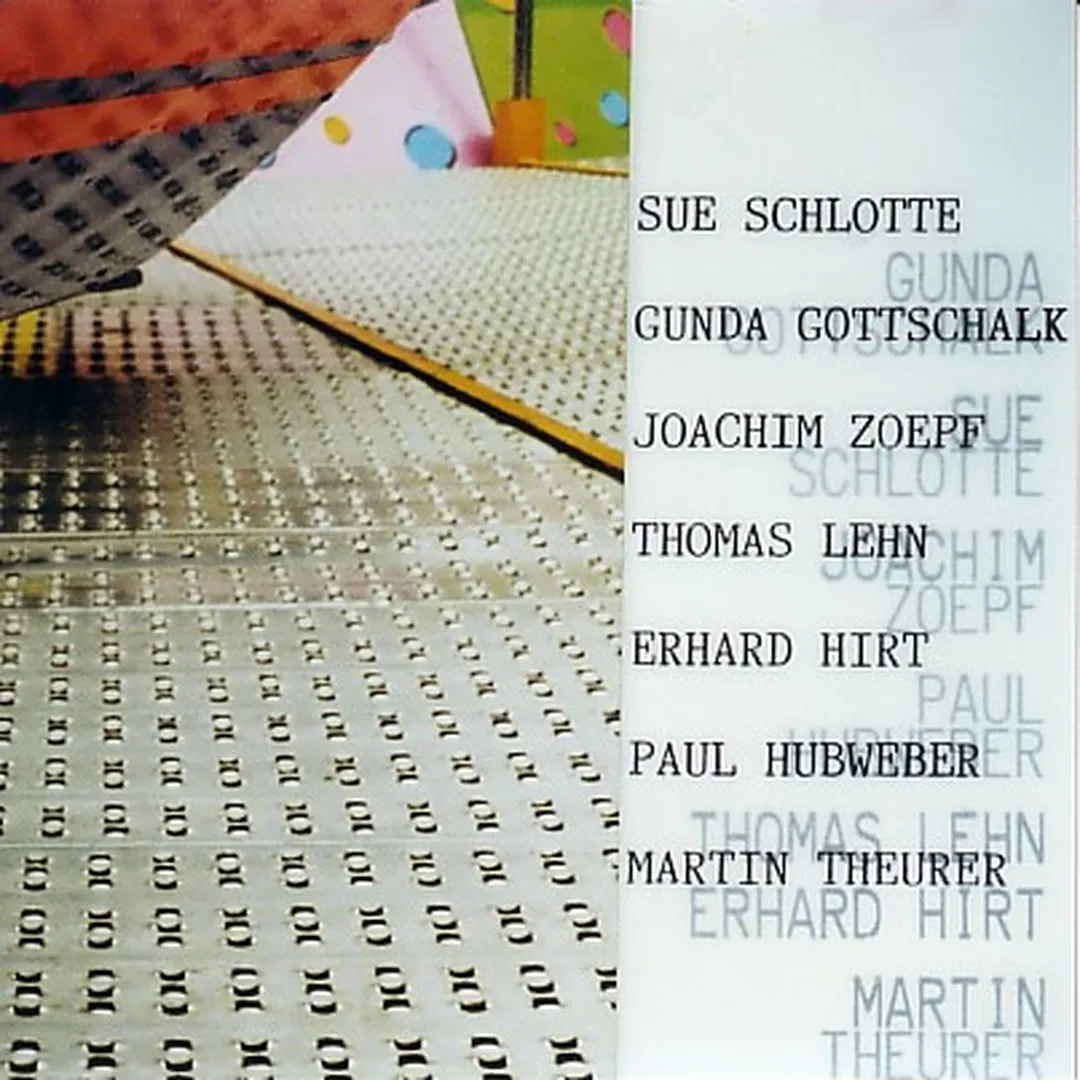 SUE SCHLOTTE
GUNDA
GUNDA GOTTSCHALK
GOTTSCHALK
SUE
JOACHIM ZOEPF
SCHLOTTE
THOMAS LEHN
JOACHIM
ZOEPF
ERHARD HIRT
PAUL
HUBWEBER
PAUL HUBWEBER
THOMAS LEHN
MARTIN THEURER
ERHARD HIRT
MARTIN
THEURER